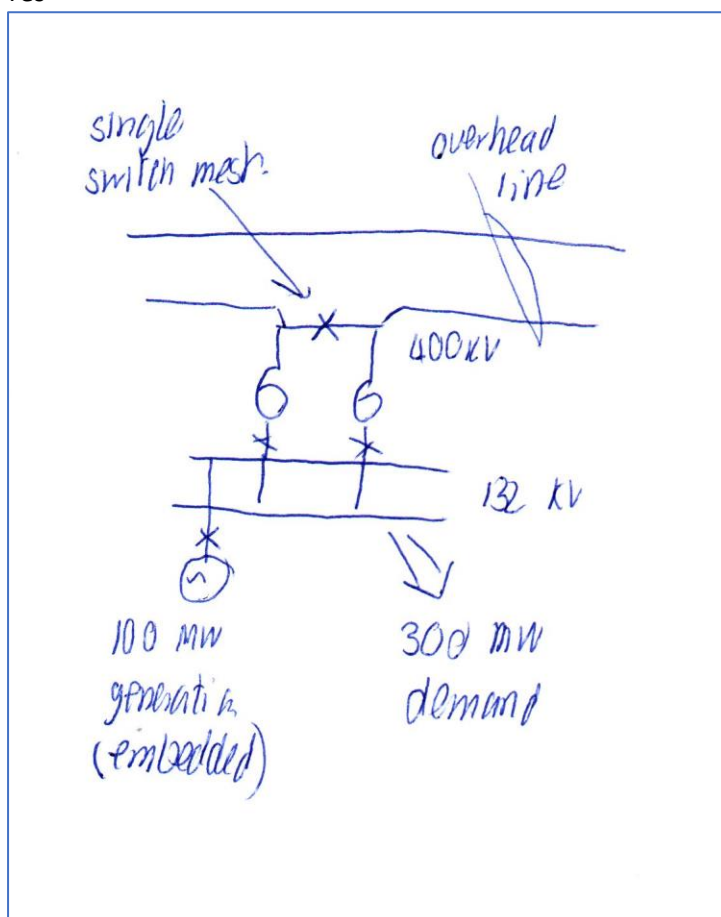 single
switch mesh.
overhead
line
400KV
132 KV
100 MW
generation
(embedded)
300 MW
demand